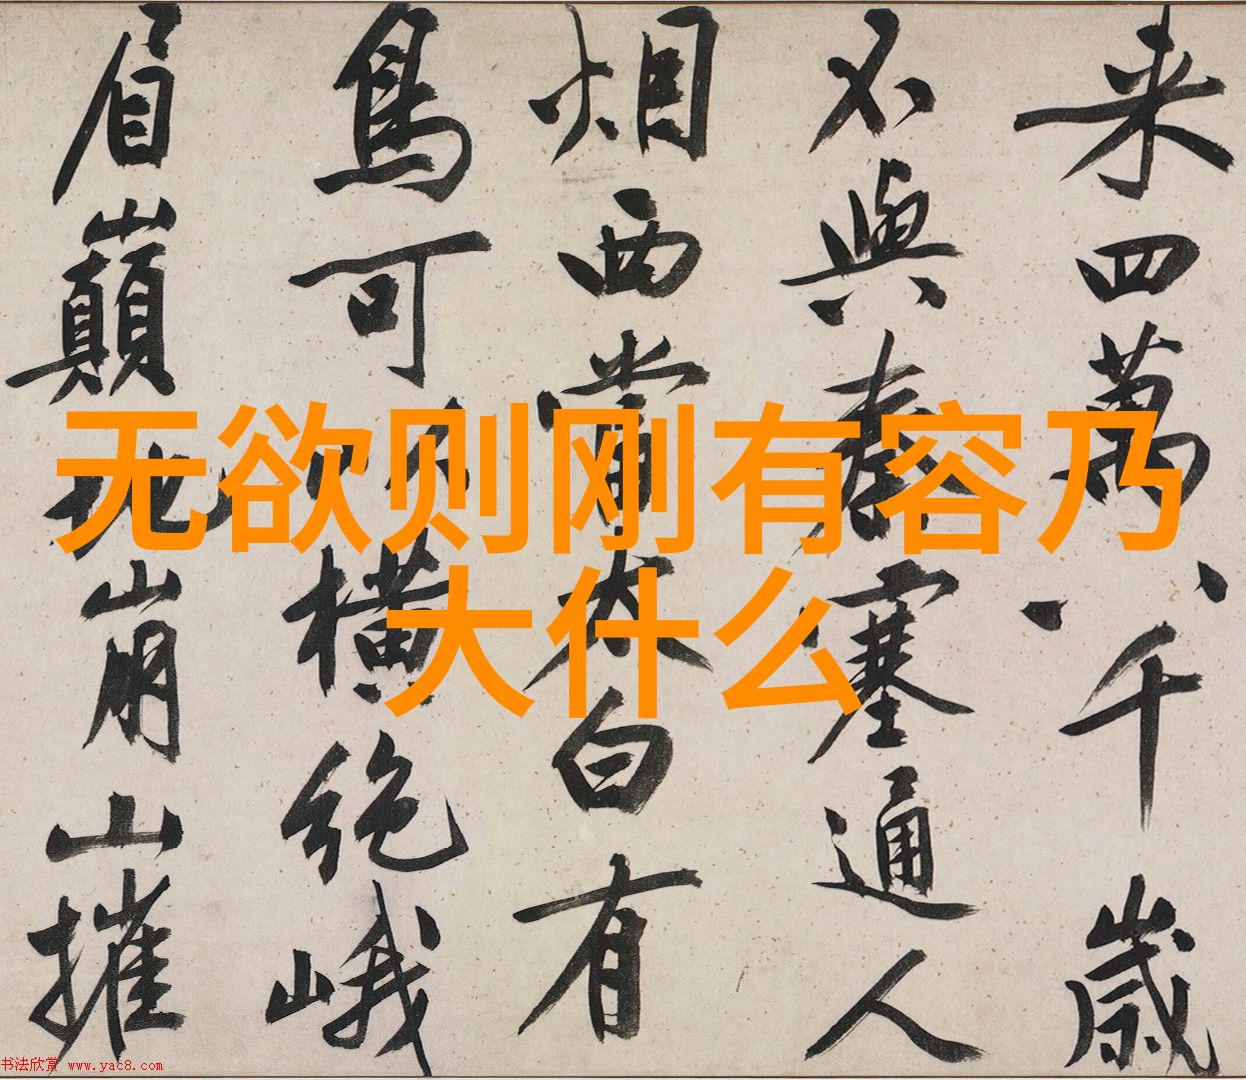 来四萬八千歲
不與秦塞通人
烟西當太白有
鳥可以橫絶峨
眉巔地崩山摧
无欲则刚有容乃
大什么
书法欣赏 www.yac8.com